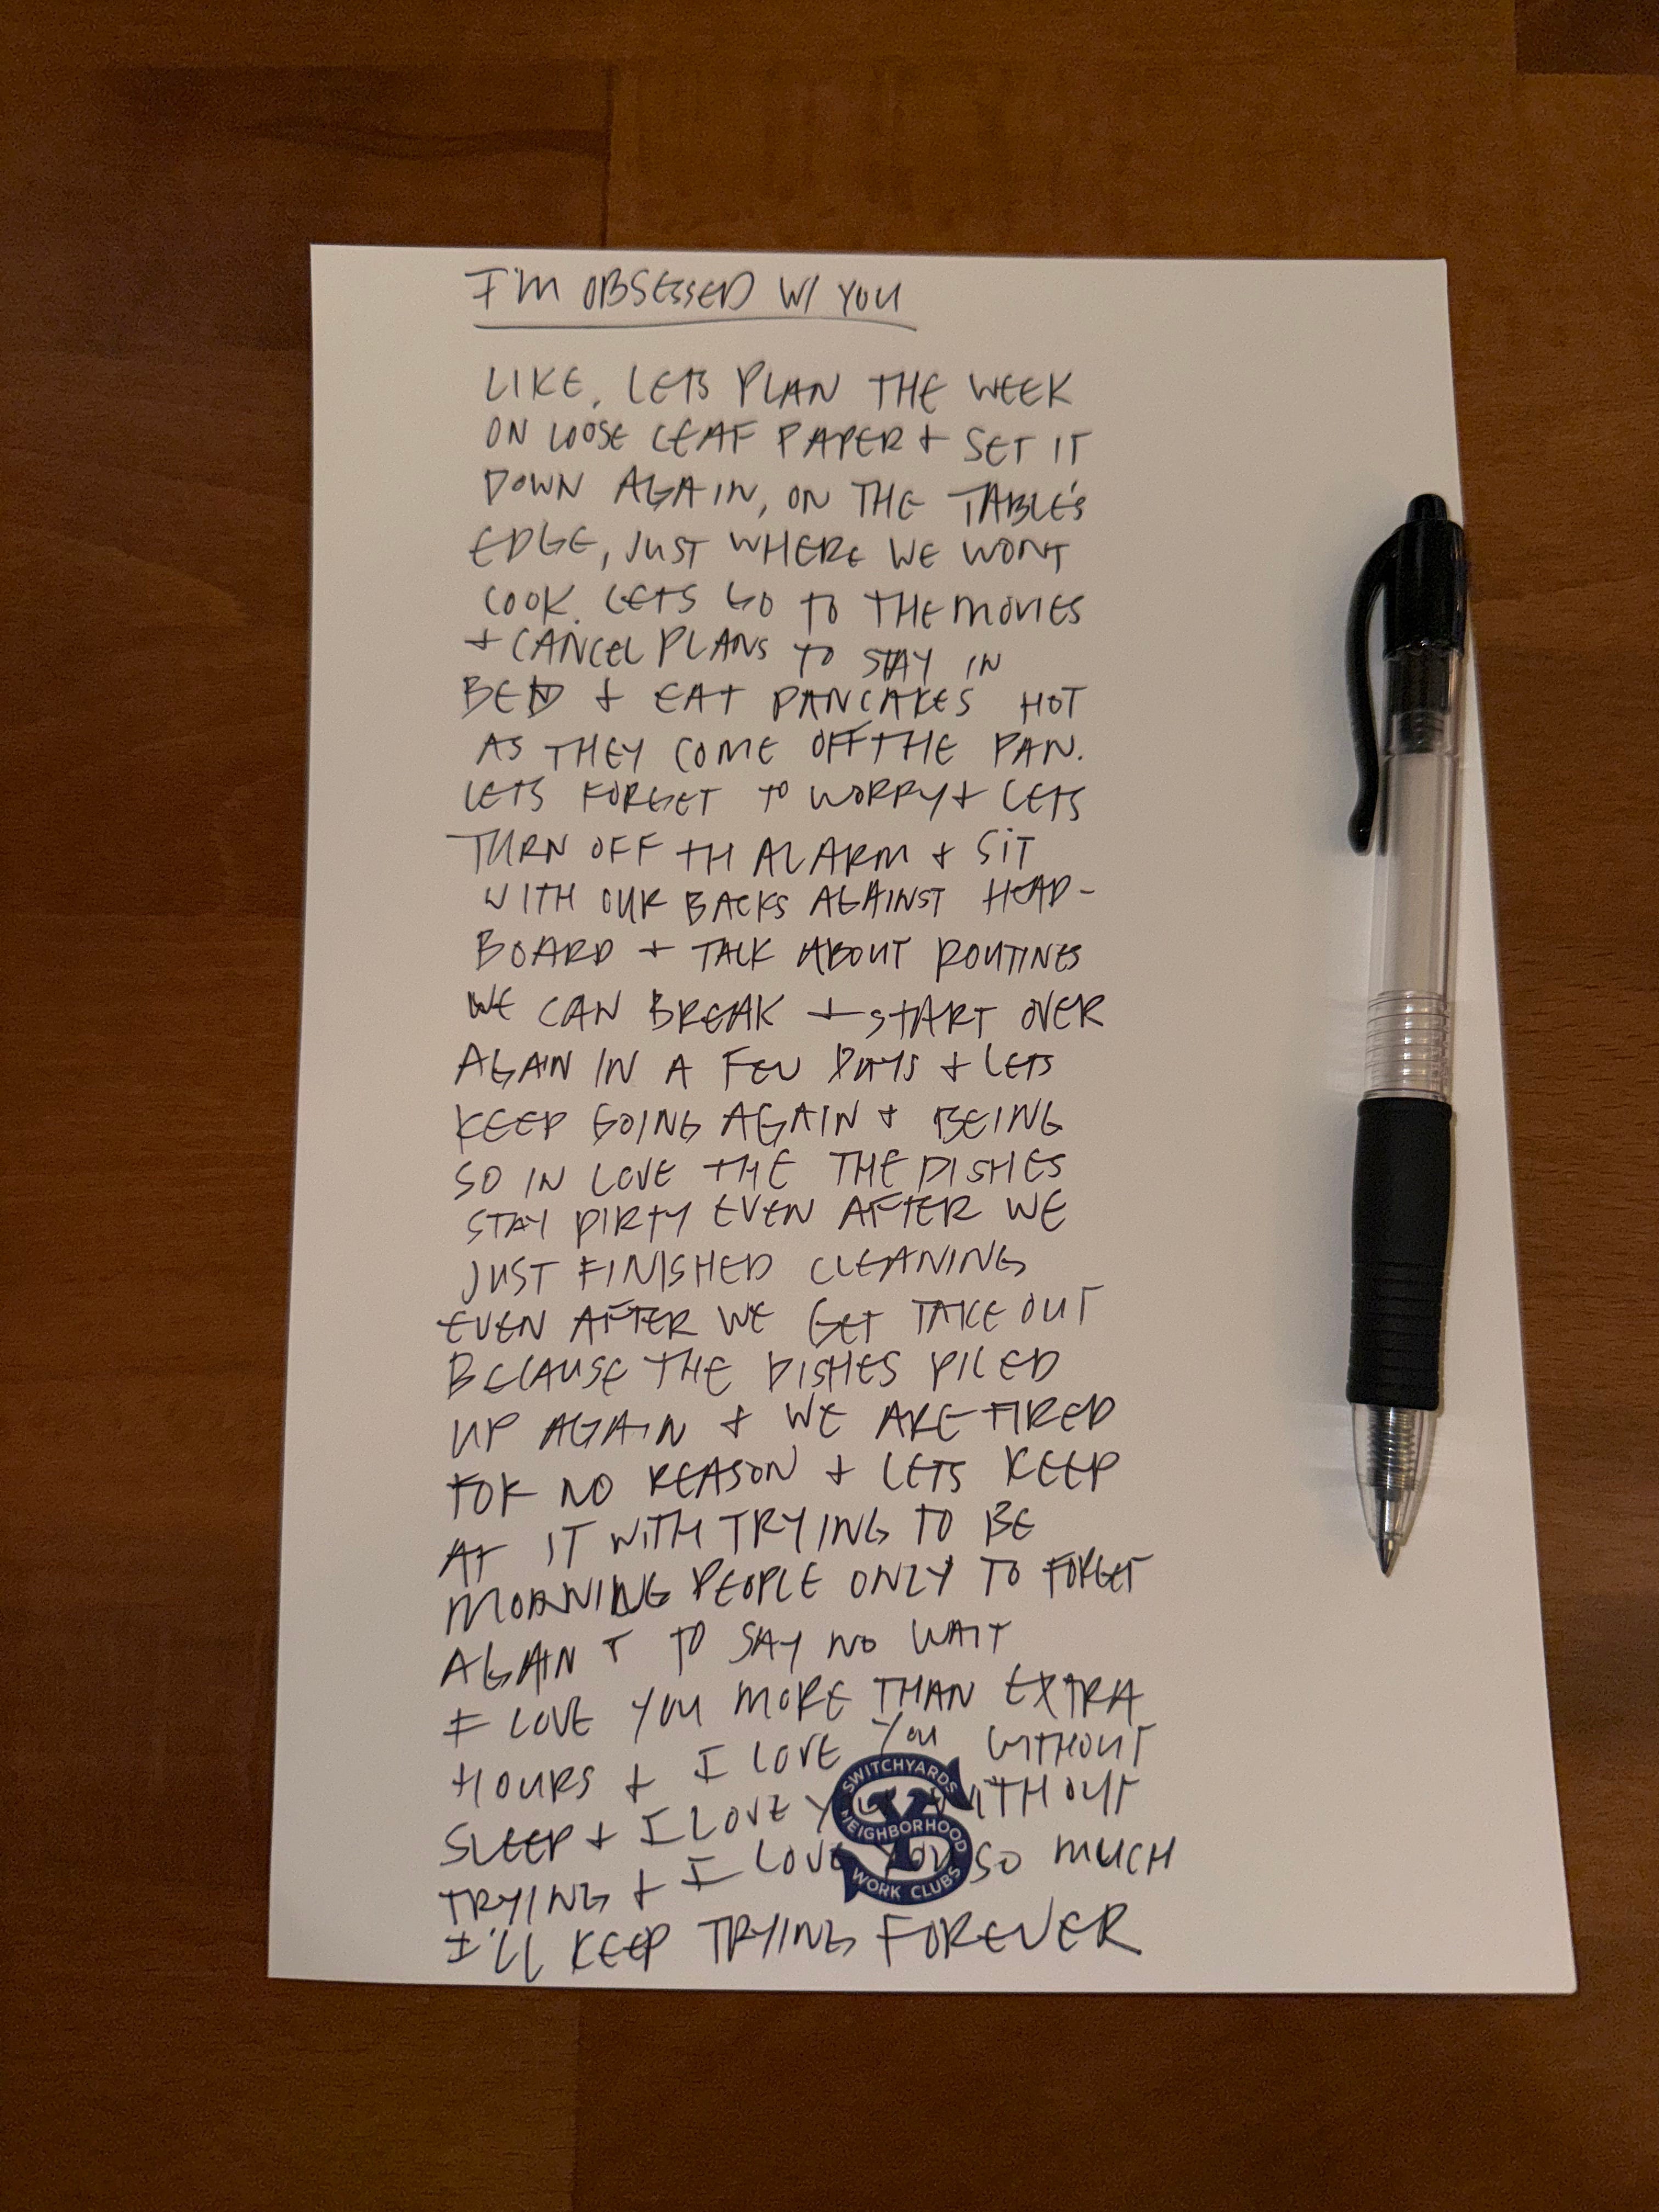 I'M OBSESSED W/ YOU
LIKE, LETS PLAN THE WEEK
ON LOOSE LEAF PAPER + SET IT
DOWN AGAIN, ON THE TABLE'S
EDGE, JUST WHERE WE WONT
COOK. LETS GO TO THE MOVIES
+ CANCEL PLANS TO STAY IN
BED + EAT PANCAKES HOT
AS THEY COME OFF THE PAN.
LETS FORGET TO WORRY + LETS
TURN OFF TH ALARM + SIT
WITH OUR BACKS AGAINST HEAD-
BOARD + TALK ABOUT ROUTINES
WE CAN BREAK + START OVER
AGAIN IN A FEW DAYS + LETS
KEEP GOING AGAIN + BEING
SO IN LOVE THE THE DISHES
STAY DIRTY EVEN AFTER WE
JUST FINISHED CLEANING
EVEN AFTER WE GET TAKE OUT
BECAUSE THE DISHES PILED
UP AGAIN + WE ARE TIRED
FOR NO REASON + LETS KEEP
AT IT WITH TRYING TO BE
MORNING PEOPLE ONLY TO FORGET
AGAIN + TO SAY NO WAIT
I LOVE YOU MORE THAN EXTRA
HOURS + I LOVE YOU WITHOUT
SLEEP + I LOVE YOU WITHOUT
TRYING + I LOVE YOU SO MUCH
I'LL KEEP TRYING FOREVER
SWITCHYARDS
NEIGHBORHOOD
WORK CLUBS